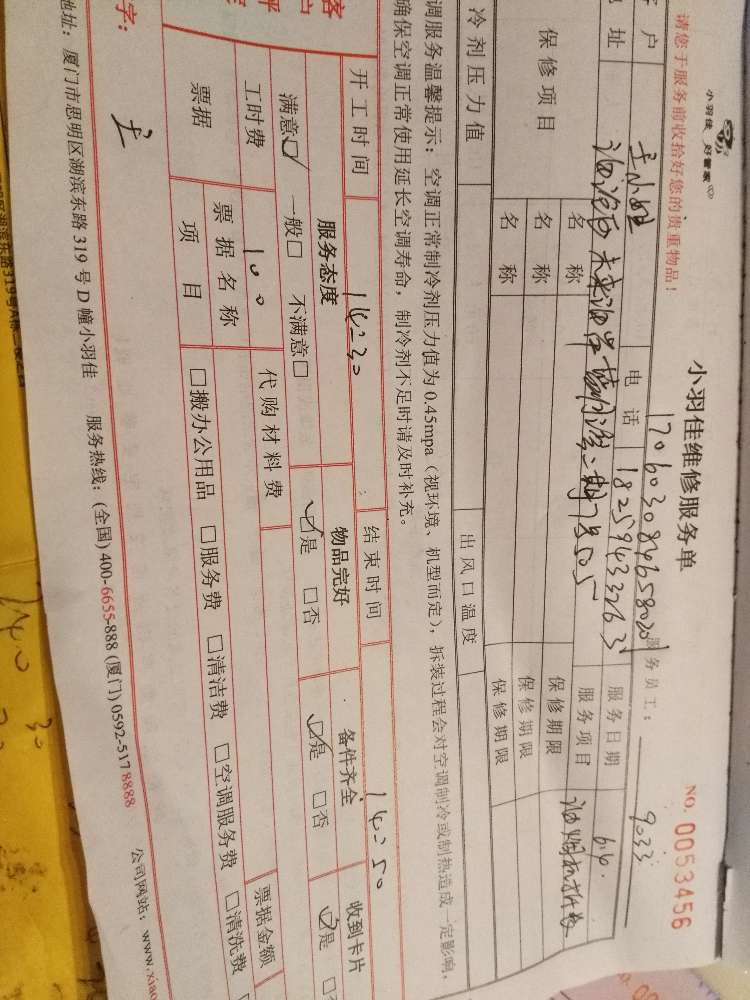 小羽佳 好管家
小羽佳维修服务单
NO. 0053456
请您于服务前收拾好您的贵重物品!
1706030846580201
服务员工: 9033
客户 王小姐 电话 18259433263 服务日期 6.4.
地址 未来海岸 二期 505 服务项目 油烟机拆装
保修项目 名称 保修期限
名称 保修期限
名称 保修期限
冷剂压力值 出风口温度
调服务温馨提示: 空调正常制冷剂压力值为0.45mpa (视环境、机型而定), 拆装过程会对空调制冷或制热造成一定影响,
确保空调正常使用延长空调寿命, 制冷剂不足时请及时补充。
开工时间 14:30 结束时间 14:50
客 服务态度 物品完好 备件齐全 收到卡片
满意☑ 一般□ 不满意□ ☑是 □否 ☑是 □否 ☑是
评
工时费 100 代购材料费 票据金额
票据 票据名称
项目 □搬办公用品 □服务费 □清洁费 □空调服务费 □清洗费
字:
地址: 厦门市思明区湖滨东路319号D幢小羽佳 服务热线: (全国)400-6655-888 (厦门)0592-5178888 公司网站: www.xiao